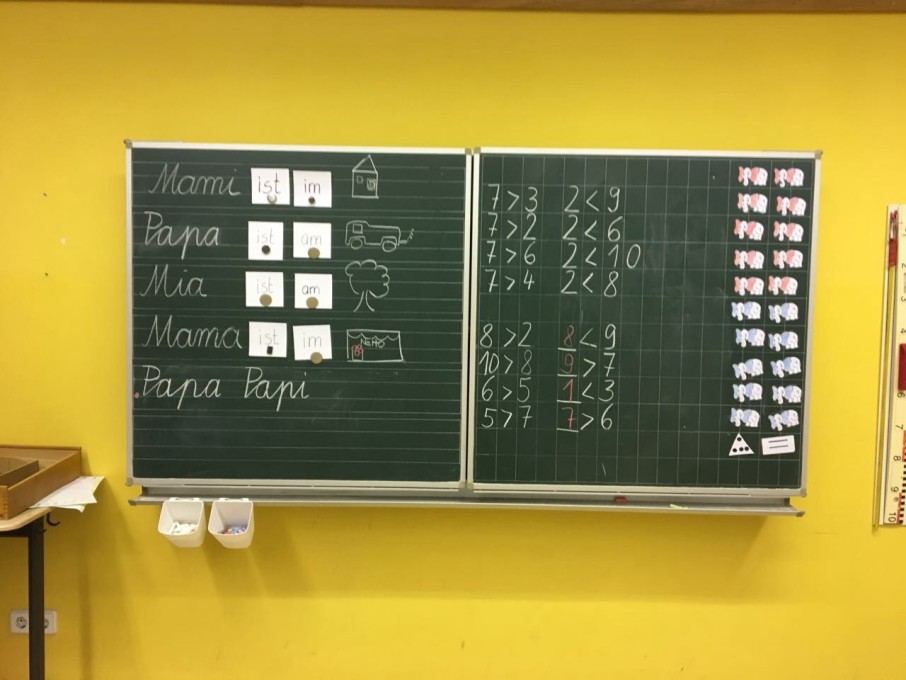 Mami ist im
Papa ist am
Mia ist am
Mama ist im
Papa Papi
7>3 2<9
7>2 2<6
7>6 2<10
7>4 2<8
8>2 8<9
10>8 9>7
6>5 1<3
5>7 7>6